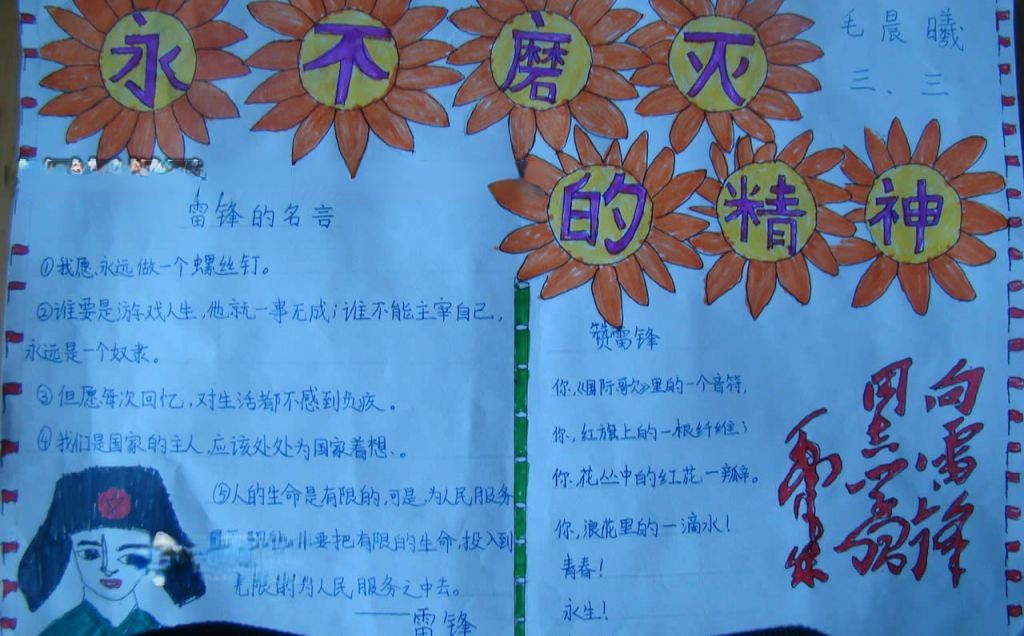 永不磨灭
的精神
毛晨曦
三、三
雷锋的名言
①我愿永远做一个螺丝钉。
②谁要是游戏人生,他就一事无成;谁不能主宰自己,
永远是一个奴隶。
③但愿每次回忆,对生活都不感到负疚。
④我们是国家的主人,应该处处为国家着想.。
⑤人的生命是有限的,可是,为人民服务
要把有限的生命,投入到
无限的为人民服务之中去。
——雷锋
赞雷锋
你,《国际歌》里的一个音符,
你,红旗上的一根纤维;
你,花丛中的红花一瓣。
你,浪花里的一滴水!
青春!
永生!
向雷锋
同志学习
毛泽东